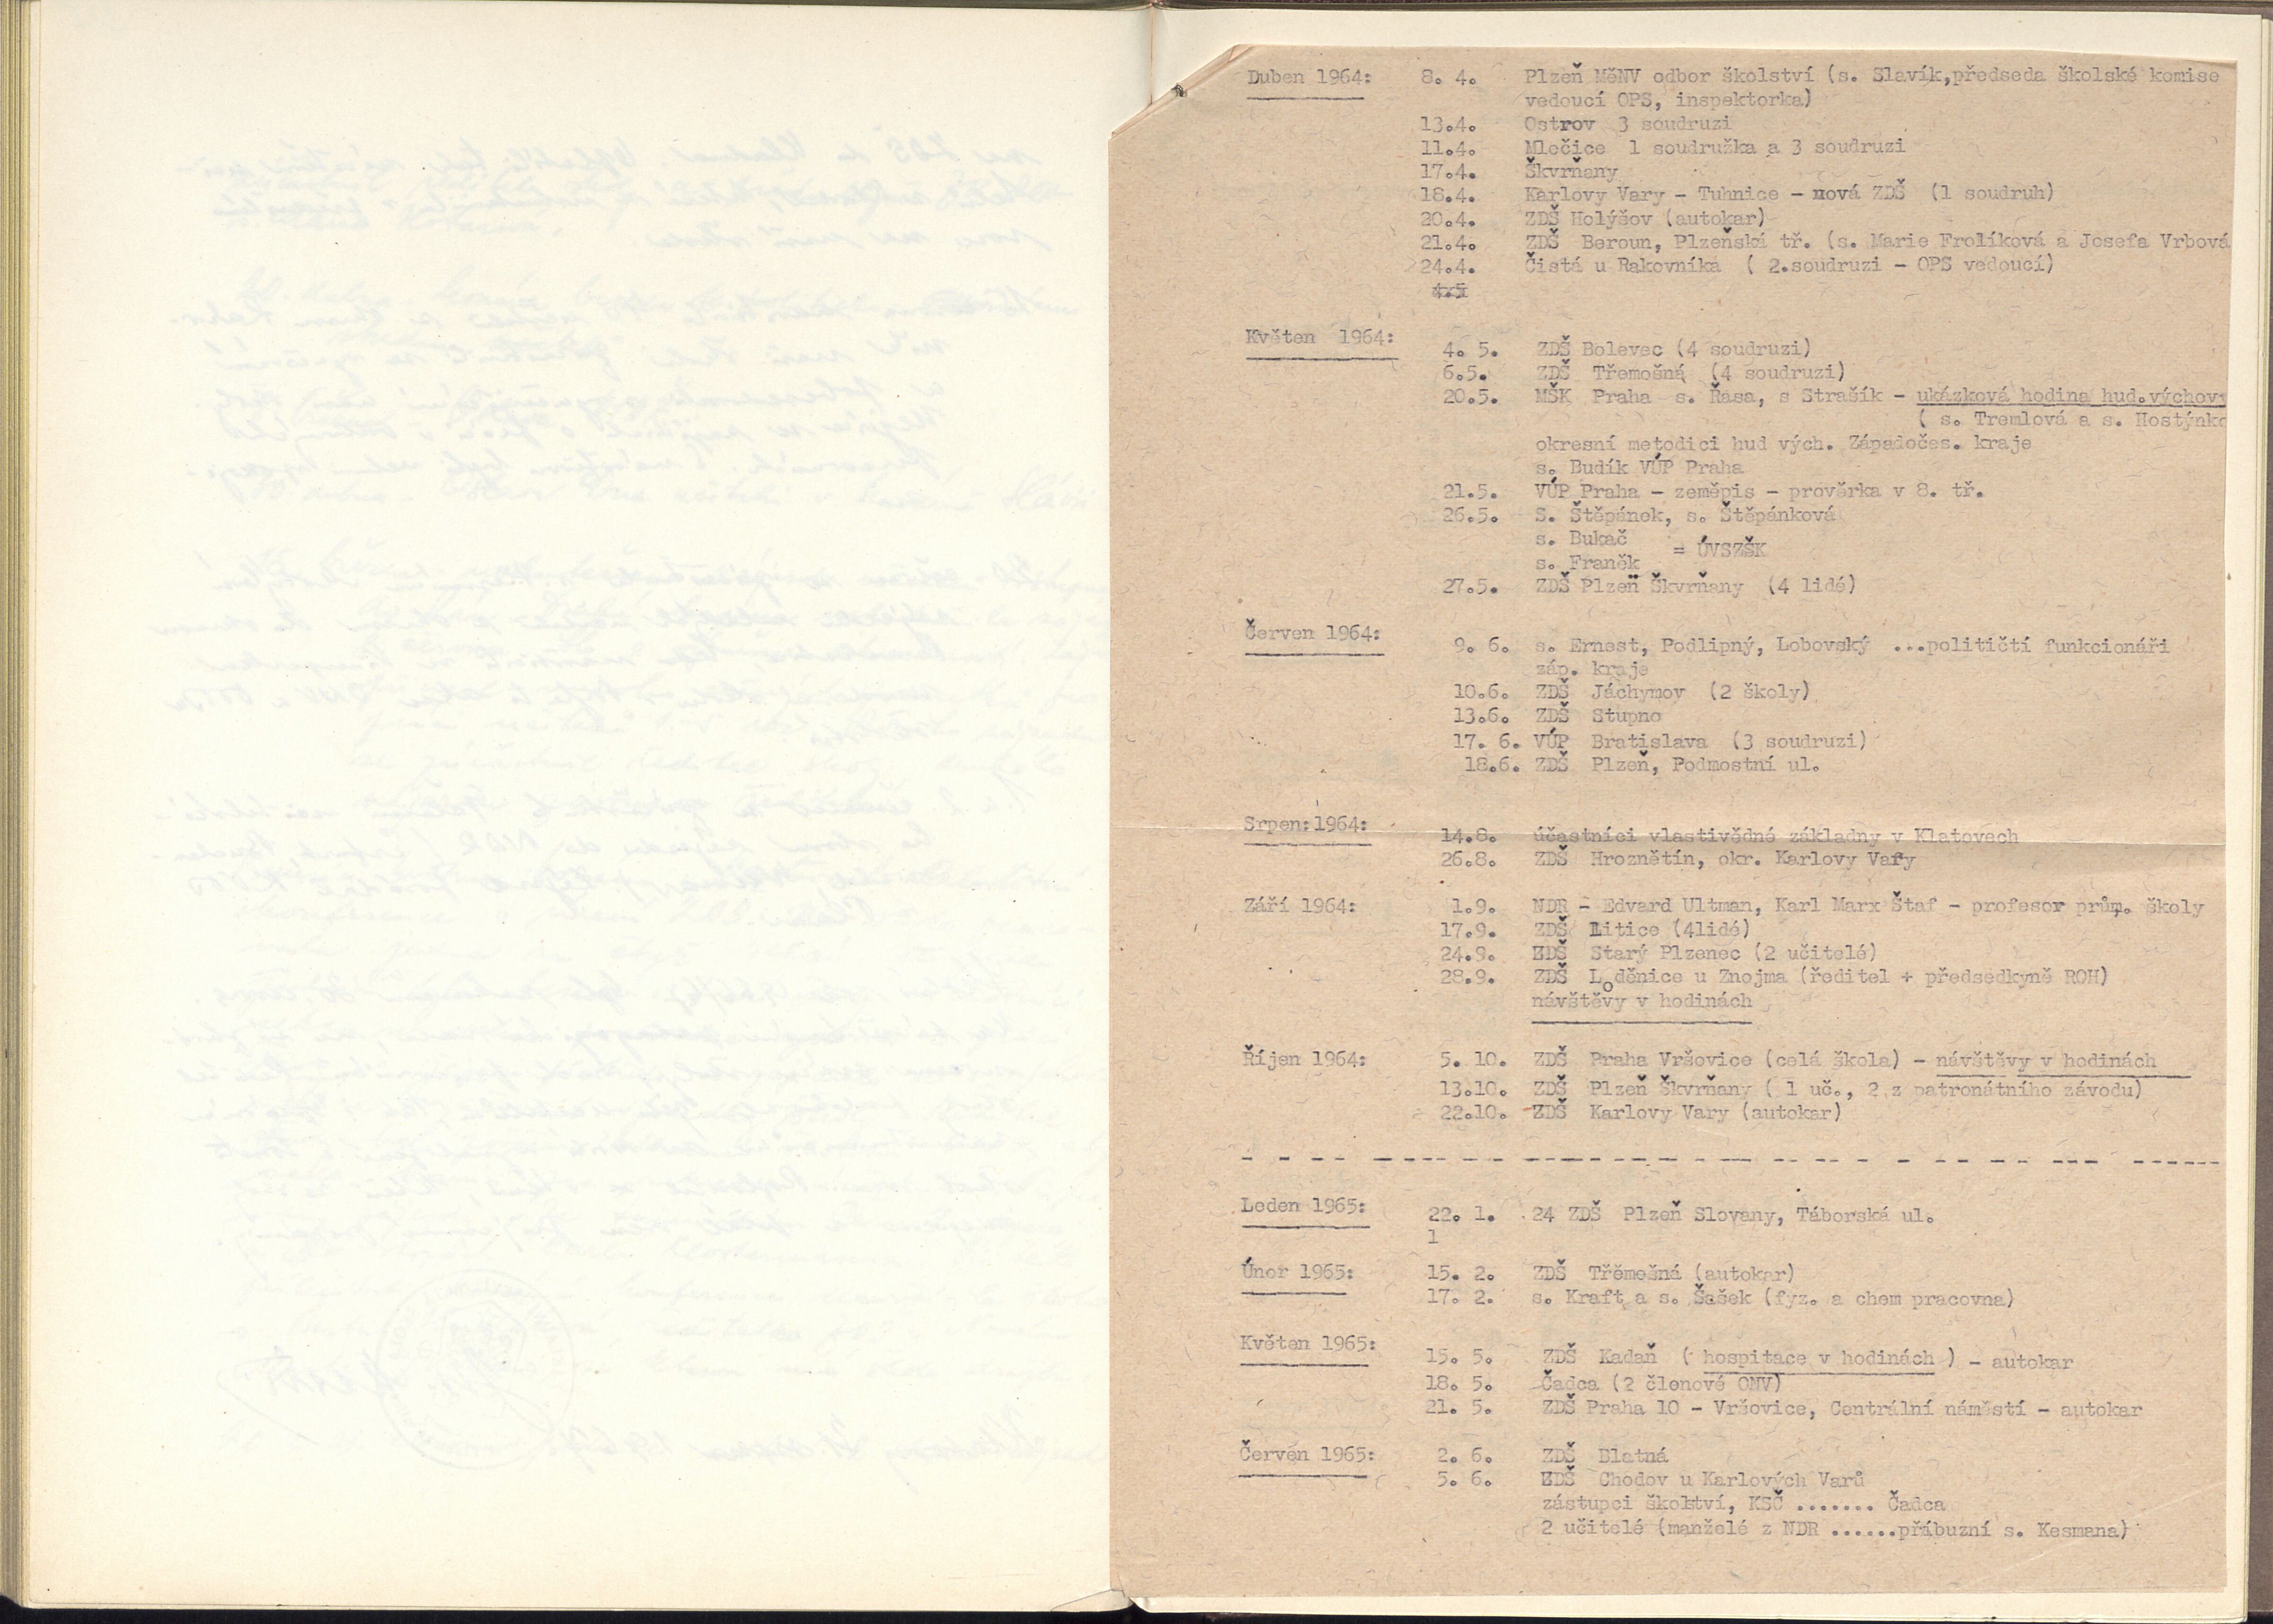 Duben 1964: 8. 4. Plzeň MěNV odbor školství (s. Slavík,předseda školské komise
vedoucí OPS, inspektorka)
13.4. Ostrov 3 soudruzi
11.4. Mlečice 1 soudružka a 3 soudruzi
17.4. Škvrňany
18.4. Karlovy Vary - Tuhnice - nová ZDŠ (1 soudruh)
20.4. ZDŠ Holýšov (autokar)
21.4. ZDŠ Beroun, Plzeňská tř. (s. Marie Frolíková a Josefa Vrbová
24.4. Čistá u Rakovníka ( 2.soudruzi - OPS vedoucí)
4.5
Květen 1964:
4. 5. ZDŠ Bolevec (4 soudruzi)
6.5. ZDŠ Třemošná (4 soudruzi)
20.5. MŠK Praha s. Řasa, s Strašík - ukázková hodina hud.výchovy
( s. Tremlová a s. Hostýnko
okresní metodici hud vých. Západočes. kraje
s. Budík VÚP Praha
21.5. VÚP Praha - zeměpis - prověrka v 8. tř.
26.5. S. Štěpánek, s. Štěpánková
s. Bukač
= ÚVSZŠK
s. Franěk
27.5. ZDŠ Plzeň Škvrňany (4 lidé)
Červen 1964:
9. 6. s. Ernest, Podlipný, Lobovský ...političtí funkcionáři
záp. kraje
10.6. ZDŠ Jáchymov (2 školy)
13.6. ZDŠ Stupno
17. 6. VÚP Bratislava (3 soudruzi)
18.6. ZDŠ Plzeň, Podmostní ul.
Srpen:1964:
14.8. účastníci vlastivědné základny v Klatovech
26.8. ZDŠ Hroznětín, okr. Karlovy Vary
Září 1964: 1.9. NDR - Edvard Ultman, Karl Marx Štaf - profesor prům. školy
17.9. ZDŠ Litice (4lidé)
24.9. ZDŠ Starý Plzenec (2 učitelé)
28.9. ZDŠ Loděnice u Znojma (ředitel + předsedkyně ROH)
návštěvy v hodinách
Říjen 1964: 5. 10. ZDŠ Praha Vršovice (celá škola) - návštěvy v hodinách
13.10. ZDŠ Plzeň Škvrňany ( 1 uč., 2 z patronátního závodu)
22.10. ZDŠ Karlovy Vary (autokar)
Leden 1965: 22. 1. 24 ZDŠ Plzeň Slovany, Táborská ul.
1
Únor 1965: 15. 2. ZDŠ Třěmešná (autokar)
17. 2. s. Kraft a s. Šašek (fyz. a chem pracovna)
Květen 1965:
15. 5. ZDŠ Kadaň ( hospitace v hodinách ) - autokar
18. 5. Čadca (2 členové ONV)
21. 5. ZDŠ Praha 10 - Vršovice, Centrální náměstí - autokar
Červen 1965: 2. 6. ZDŠ Blatná
5. 6. ZDŠ Chodov u Karlových Varů
zástupci školství, KSČ ....... Čadca
2 učitelé (manželé z NDR ......příbuzní s. Kesmana)